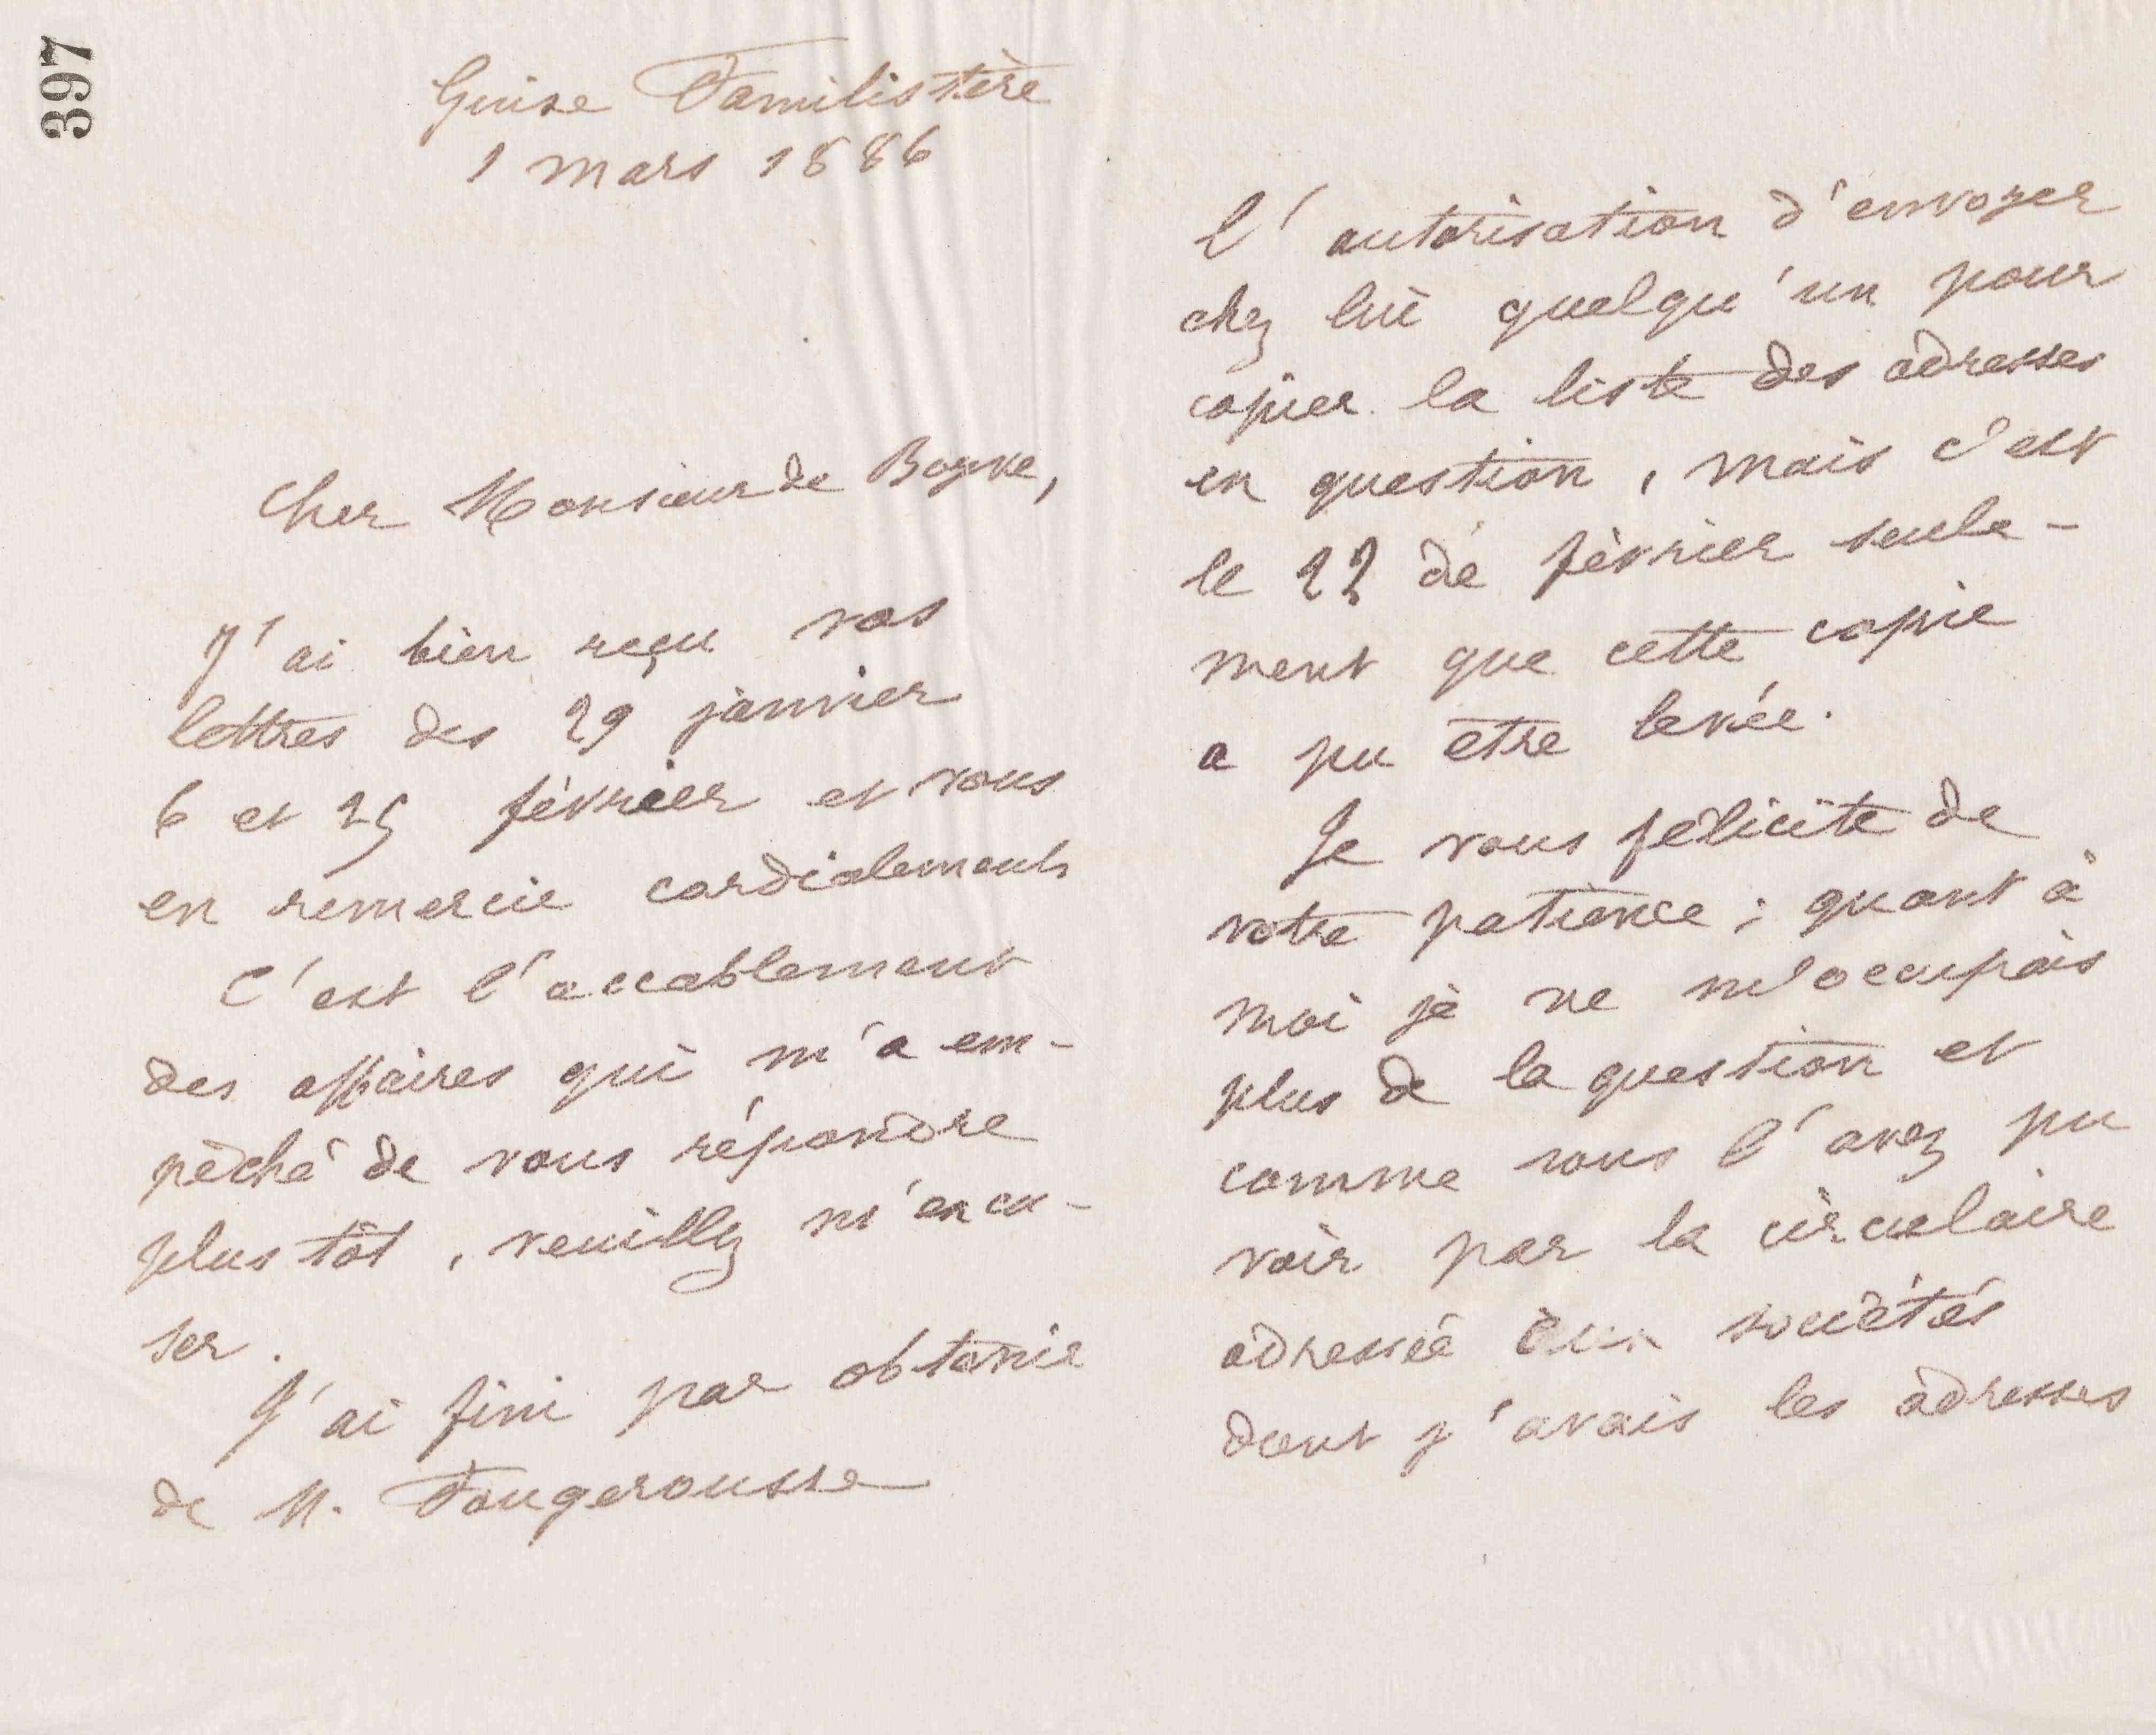 397
Guise Familistère
1 mars 1886
Cher Monsieur de Boyve,
J'ai bien reçu vos
lettres des 29 janvier
6 et 25 février et vous
en remercie cordialement
C'est l'accablement
des affaires qui m'a em-
pêché de vous répondre
plus tôt, veuillez m'excu-
ser.
J'ai fini par obtenir
de M. Fougerousse
l'autorisation d'envoyer
chez lui quelqu'un pour
copier la liste des adresses
en question, mais c'est
le 22 de février seule-
ment que cette copie
a pu être levée.
Je vous félicite de
votre patience ; quant à
moi je ne m'occupais
plus de la question et
comme vous l'avez pu
voir par la circulaire
adressée aux sociétés
dont j'avais les adresses